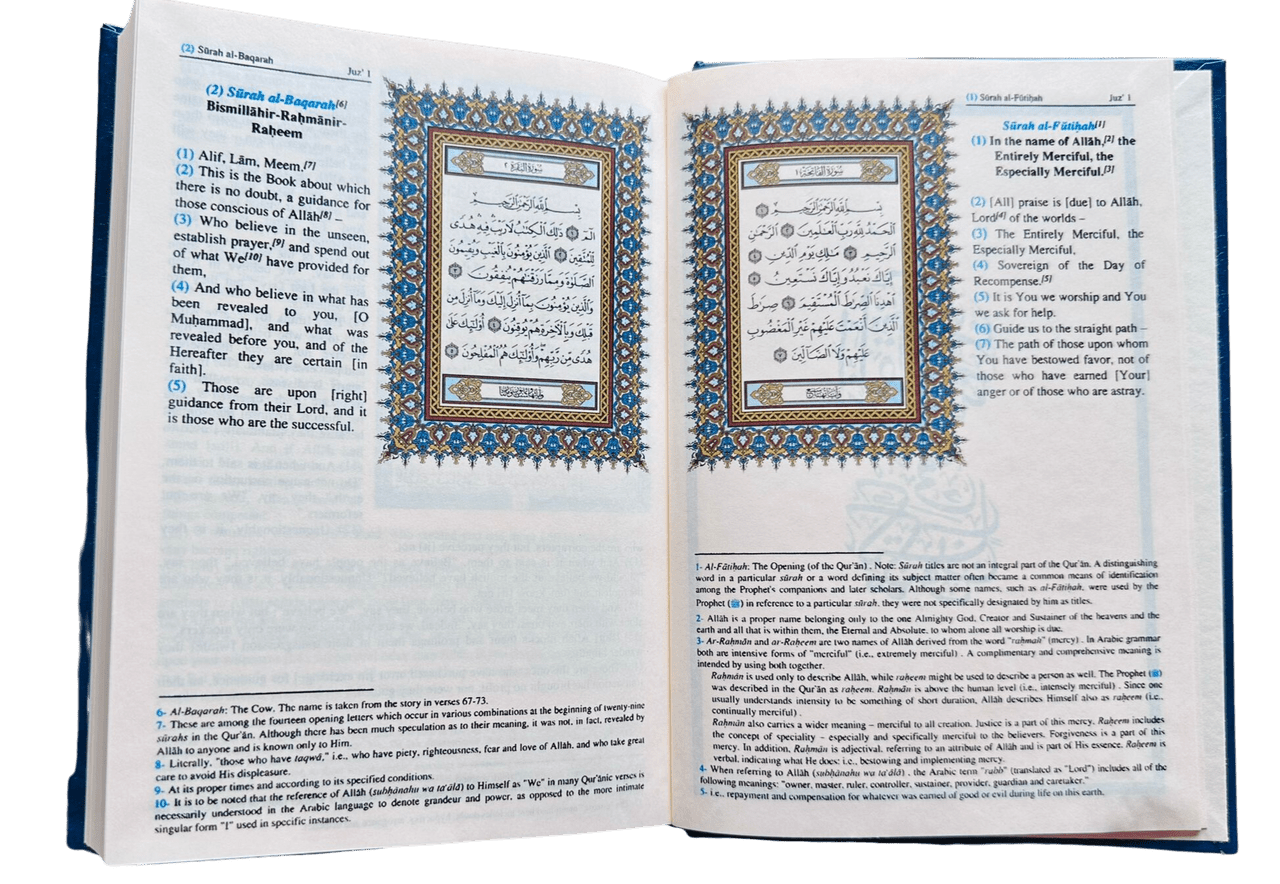 (1) Sūrah al-Fātiḥah Juz' 1
Sūrah al-Fātiḥah[1]
(1) In the name of Allāh,[2] the
Entirely Merciful, the
Especially Merciful.[3]
(2) [All] praise is [due] to Allāh,
Lord[4] of the worlds –
(3) The Entirely Merciful, the
Especially Merciful,
(4) Sovereign of the Day of
Recompense.[5]
(5) It is You we worship and You
we ask for help.
(6) Guide us to the straight path –
(7) The path of those upon whom
You have bestowed favor, not of
those who have earned [Your]
anger or of those who are astray.
سُورَةُ الفَاتِحَةِ ١
بِسْمِ اللَّهِ الرَّحْمَٰنِ الرَّحِيمِ ١
الْحَمْدُ لِلَّهِ رَبِّ الْعَٰلَمِينَ ٢ الرَّحْمَٰنِ
الرَّحِيمِ ٣ مَٰلِكِ يَوْمِ الدِّينِ ٤
إِيَّاكَ نَعْبُدُ وَإِيَّاكَ نَسْتَعِينُ ٥
اهْدِنَا الصِّرَٰطَ الْمُسْتَقِيمَ ٦ صِرَٰطَ
الَّذِينَ أَنْعَمْتَ عَلَيْهِمْ غَيْرِ الْمَغْضُوبِ
عَلَيْهِمْ وَلَا الضَّآلِّينَ ٧
وآياتها سبع
1- Al-Fātiḥah: The Opening (of the Qur'ān) . Note: Sūrah titles are not an integral part of the Qur'ān. A distinguishing
word in a particular sūrah or a word defining its subject matter often became a common means of identification
among the Prophet's companions and later scholars. Although some names, such as al-Fātiḥah, were used by the
Prophet (ﷺ) in reference to a particular sūrah, they were not specifically designated by him as titles.
2- Allāh is a proper name belonging only to the one Almighty God, Creator and Sustainer of the heavens and the
earth and all that is within them, the Eternal and Absolute, to whom alone all worship is due.
3- Ar-Raḥmān and ar-Raḥeem are two names of Allāh derived from the word "raḥmah" (mercy) . In Arabic grammar
both are intensive forms of "merciful" (i.e., extremely merciful) . A complimentary and comprehensive meaning is
intended by using both together.
Raḥmān is used only to describe Allāh, while raḥeem might be used to describe a person as well. The Prophet (ﷺ)
was described in the Qur'ān as raḥeem. Raḥmān is above the human level (i.e., intensely merciful) . Since one
usually understands intensity to be something of short duration, Allāh describes Himself also as raḥeem (i.e.,
continually merciful) .
Raḥmān also carries a wider meaning – merciful to all creation. Justice is a part of this mercy. Raḥeem includes
the concept of speciality – especially and specifically merciful to the believers. Forgiveness is a part of this
mercy. In addition, Raḥmān is adjectival, referring to an attribute of Allāh and is part of His essence. Raḥeem is
verbal, indicating what He does: i.e., bestowing and implementing mercy.
4- When referring to Allāh (subḥānahu wa ta'ālā) , the Arabic term "rabb" (translated as "Lord") includes all of the
following meanings: "owner, master, ruler, controller, sustainer, provider, guardian and caretaker."
5- i.e., repayment and compensation for whatever was earned of good or evil during life on this earth.
(2) Sūrah al-Baqarah Juz' 1
(2) Sūrah al-Baqarah[6]
Bismillāhir-Raḥmānir-
Raḥeem
(1) Alif, Lām, Meem.[7]
(2) This is the Book about which
there is no doubt, a guidance for
those conscious of Allāh[8] –
(3) Who believe in the unseen,
establish prayer,[9] and spend out
of what We[10] have provided for
them,
(4) And who believe in what has
been revealed to you, [O
Muḥammad], and what was
revealed before you, and of the
Hereafter they are certain [in
faith].
(5) Those are upon [right]
guidance from their Lord, and it
is those who are the successful.
سُورَةُ البَقَرَةِ ٢
بِسْمِ اللَّهِ الرَّحْمَٰنِ الرَّحِيمِ
الٓمٓ ١ ذَٰلِكَ الْكِتَٰبُ لَا رَيْبَ فِيهِ هُدًى
لِّلْمُتَّقِينَ ٢ الَّذِينَ يُؤْمِنُونَ بِالْغَيْبِ وَيُقِيمُونَ
الصَّلَوٰةَ وَمِمَّا رَزَقْنَٰهُمْ يُنفِقُونَ ٣
وَالَّذِينَ يُؤْمِنُونَ بِمَآ أُنزِلَ إِلَيْكَ وَمَآ أُنزِلَ مِن
قَبْلِكَ وَبِالْآخِرَةِ هُمْ يُوقِنُونَ ٤ أُو۟لَٰٓئِكَ عَلَىٰ
هُدًى مِّن رَّبِّهِمْ وَأُو۟لَٰٓئِكَ هُمُ الْمُفْلِحُونَ ٥
6- Al-Baqarah: The Cow. The name is taken from the story in verses 67-73.
7- These are among the fourteen opening letters which occur in various combinations at the beginning of twenty-nine
sūrahs in the Qur'ān. Although there has been much speculation as to their meaning, it was not, in fact, revealed by
Allāh to anyone and is known only to Him.
8- Literally, "those who have taqwā," i.e., who have piety, righteousness, fear and love of Allāh, and who take great
care to avoid His displeasure.
9- At its proper times and according to its specified conditions.
10- It is to be noted that the reference of Allāh (subḥānahu wa ta'ālā) to Himself as "We" in many Qur'ānic verses is
necessarily understood in the Arabic language to denote grandeur and power, as opposed to the more intimate
singular form "I" used in specific instances.